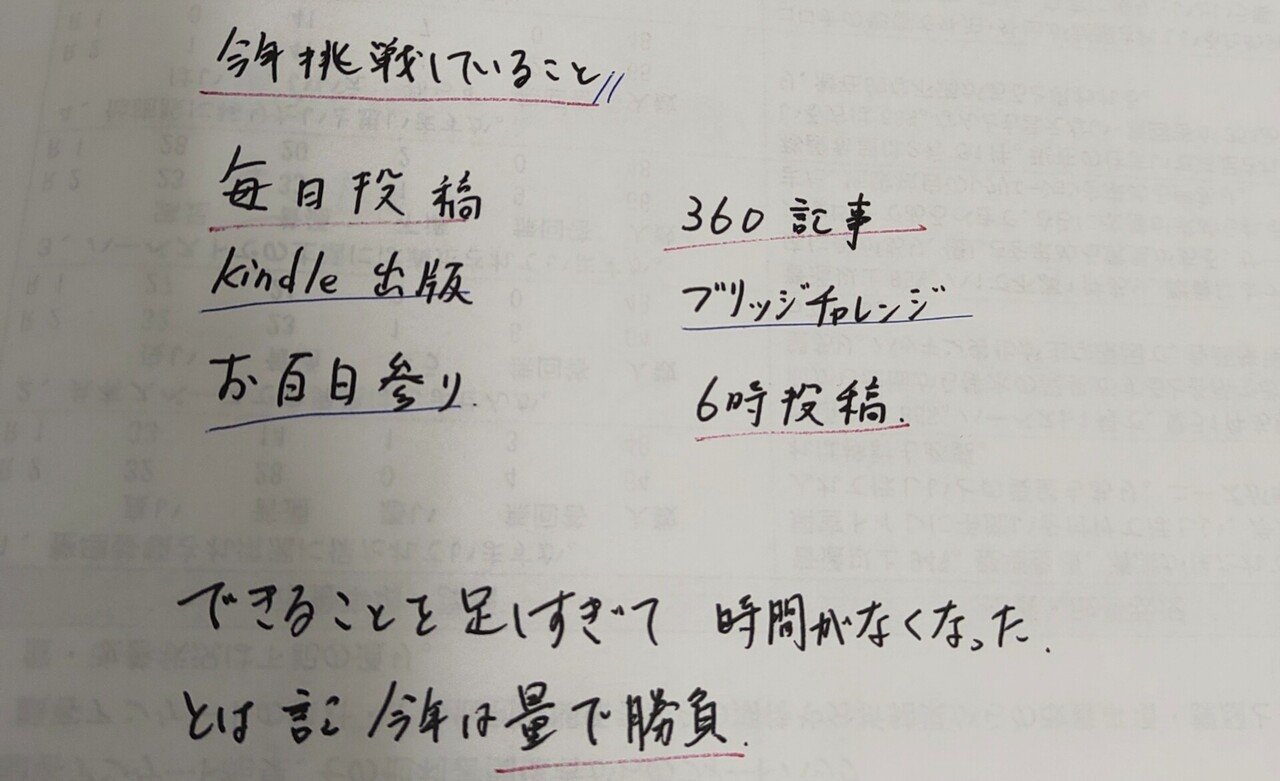 今年挑戦していること
毎日投稿
360記事
Kindle出版
ブリッジチャレンジ
お百日参り.
6時投稿.
できることを足しすぎて 時間がなくなった.
とは 今年は量で勝負.